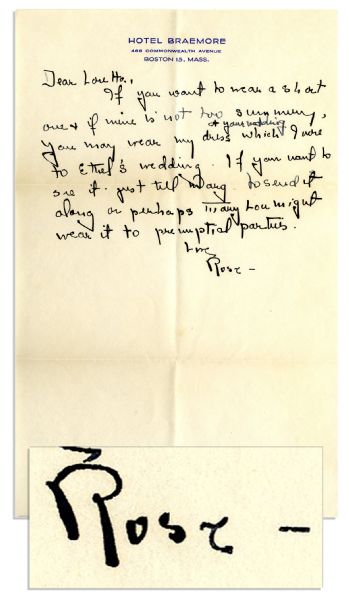 HOTEL BRAEMORE
466 COMMONWEALTH AVENUE
BOSTON 15, MASS.
Dear Lou Ha.,
If you want to wear a short
one & if mine is not too summery,
at your wedding
you may wear my dress which I wore
to Ethel's wedding. If you want to
see it just tell Mary to send it
along or perhaps Mary Lou might
wear it to prenuptial parties.
Love
Rose -
Rose -